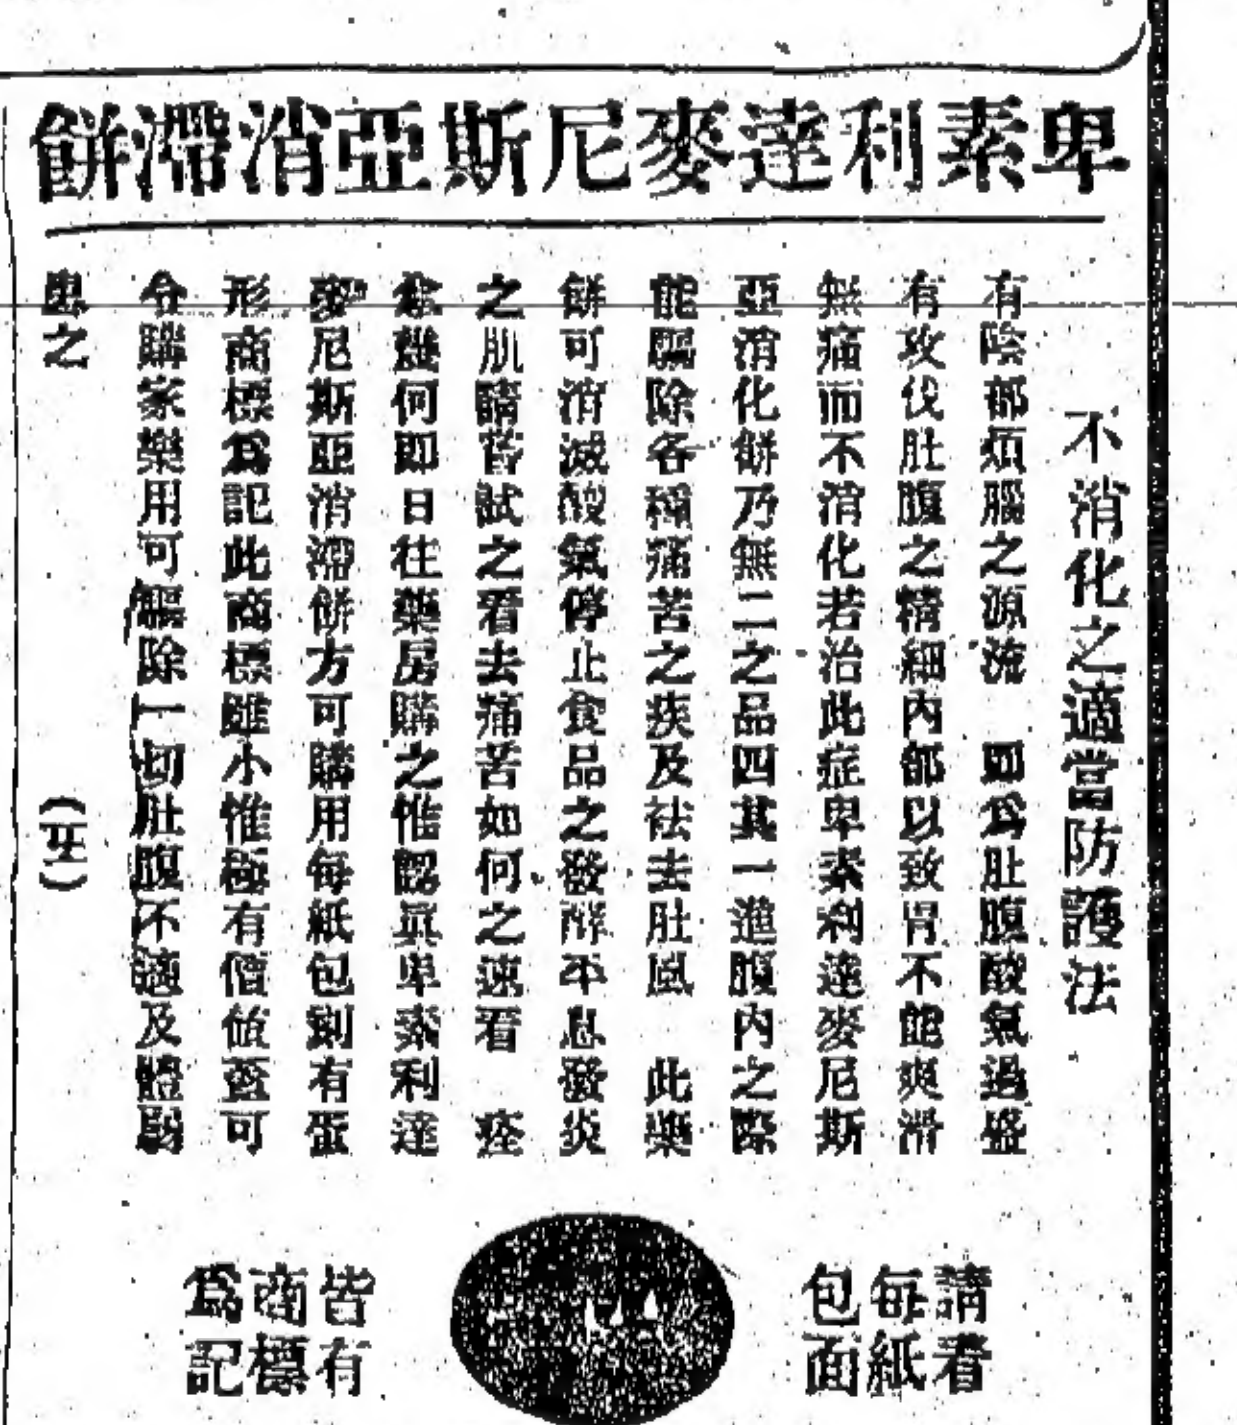 卑素利達麥尼斯亞消滯餅
不消化之適當防護法
有陰部煩腦之源流　即爲肚腹酸氣過盛
有攻伐肚腹之精細內部以致胃不能爽滑
無痛而不消化若治此症卑素利達麥尼斯
亞消化餅乃無二之品四其一進腹內之際
能驅除各種痛苦之疾及祛去肚風　此藥
餅可消滅酸氣停止食品之發酵平息發炎
之肌請嘗試之看去痛苦如何之速看　痊
愈幾何即日往藥房購之惟認眞卑素利達
麥尼斯亞消滯餅方可購用每紙包剠有蛋
形商標爲記此商標雖小惟極有價值蓋可
令購家樂用可驅除一切肚腹不適及體弱
患之
請看
每紙
包面
皆有
商標
爲記